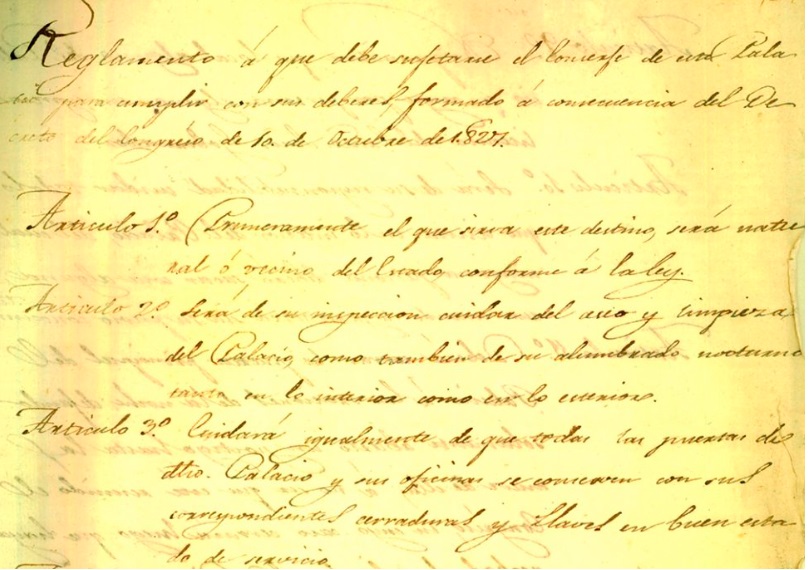 Reglamento á que debe sugetarse el Conserje de este Pala
cio para cumplir con sus deberes formado á consecuencia del De
creto del Congreso de 10. de Octubre de 1.827.
Articulo 1.º Primeramente el que sirva este destino, será natu
ral ó vecino del Estado conforme á la ley.
Articulo 2.º Será de su inspeccion cuidar del aseo y limpieza
del Palacio, como tambien de su alumbrado nocturno
tanto en lo interior como en lo exterior.
Articulo 3.º Cuidará igualmente de que todas las puertas de
dho. Palacio y sus oficinas se conserven con sus
correspondientes cerraduras y llaves en buen esta
do de servicio